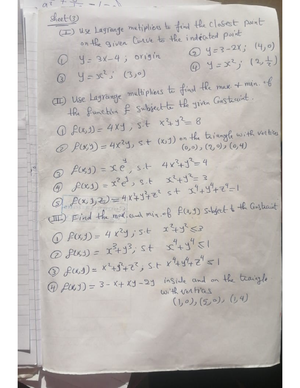 Sheet (8)
(I) Use Lagrange multipliers to find the closest point
on the given Curve to the indicated point
① y = 3x-4 ; origin
③ y = 3-2x ; (4,0)
② y = x² ; (3,0)
④ y = x² ; (2, 1/2)
(II) Use Lagrange multipliers to find the max & min of
the function f Subject to the given Constraint.
① f(x,y) = 4xy , s.t x²+y² = 8
② f(x,y) = 4xy s.t (x,y) on the triangle with vertices
(0,0), (2,0), (0,4)
③ f(x,y) = x e^y , s.t 4x²+y² = 4
④ f(x,y) = x² e^y , s.t x²+y² = 3
⑤ f(x,y,z) = 4x+y²+z² s.t x⁴+y⁴+z⁴ = 1
(III) Find the max and min of f(x,y) subject to the Constraint
① f(x,y) = 4x²y ; s.t x²+y² ≤ 3
② f(x,y) = x³+y³ ; s.t x⁴+y⁴ ≤ 1
③ f(x,y) = x²+y²+z² , s.t x⁴+y⁴+z⁴ ≤ 1
④ f(x,y) = 3-x+xy-2y inside and on the triangle
with vertices
(1,0), (5,0), (1,4)